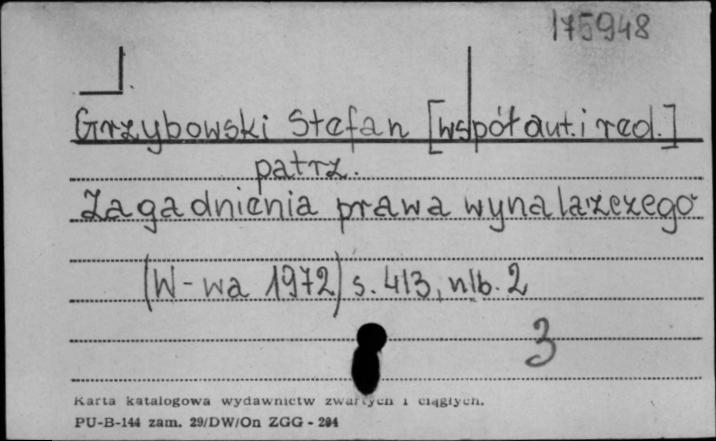 175948
Grzybowski Stefan [współaut. i red.]
patrz.
Zagadnienia prawa wynalazczego
(W-wa 1972) s. 413, nlb. 2
3
Karta katalogowa wydawnictw zwartych i ciągłych.
PU-B-144 zam. 29/DW/On ZGG - 294